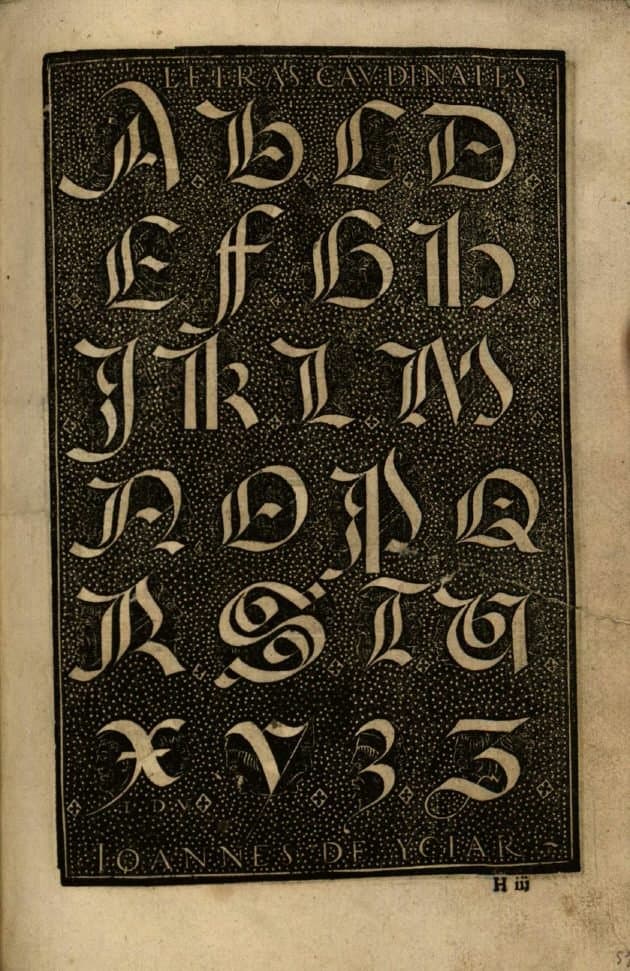 LETRAS CAVDINALES
A B C D
E F G H
J K L M
N O P Q
R S T U
X V Z Z
I D V
IOANNES DE YCIAR
H iij